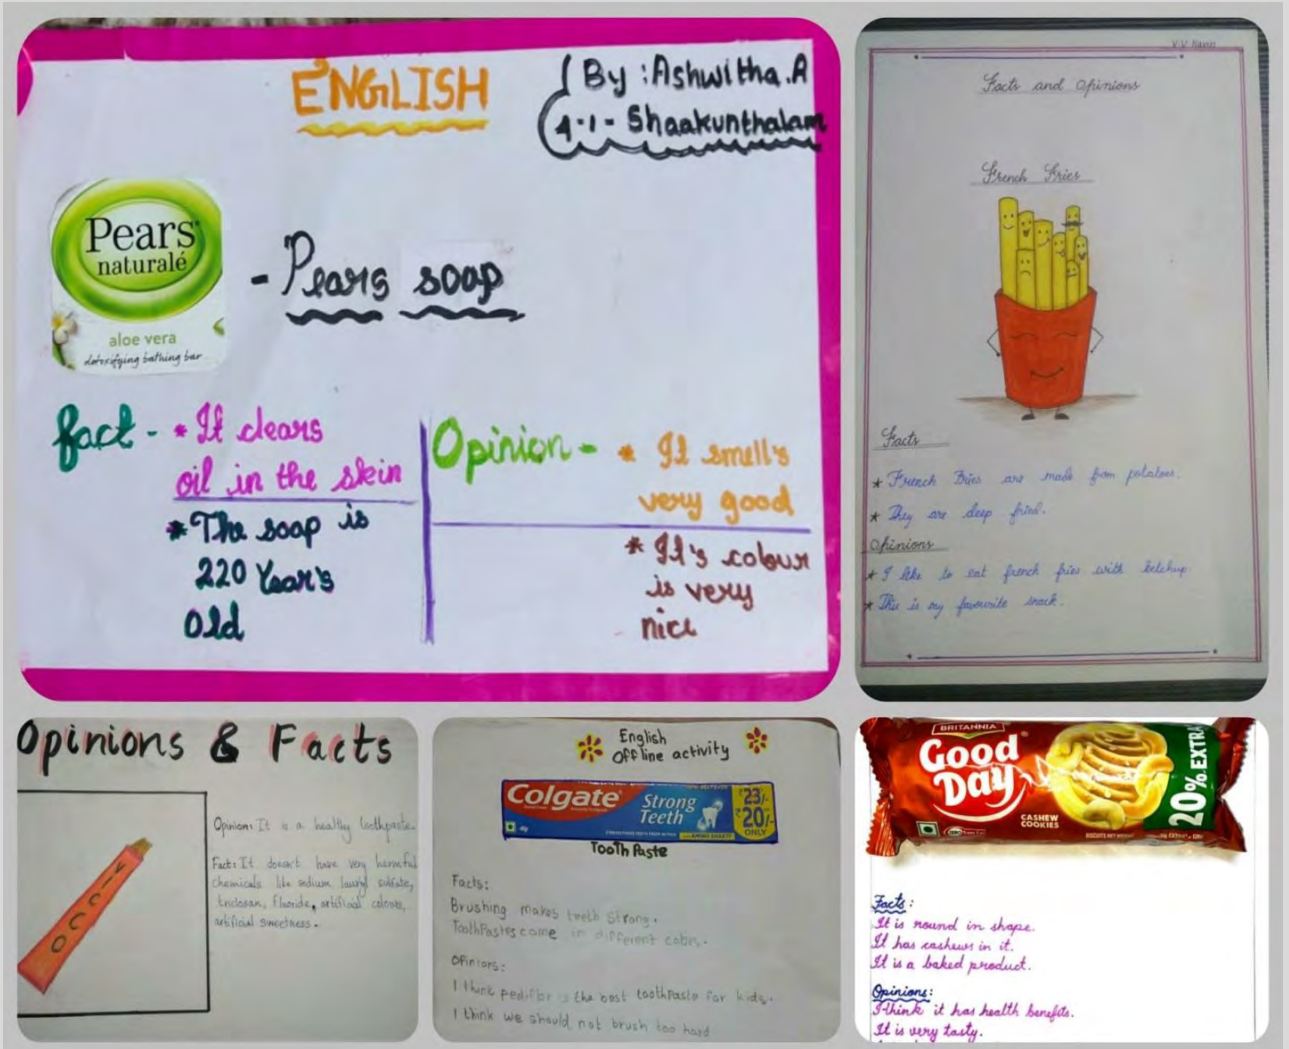 ENGLISH
By : Ashwitha.A
4-1- Shaakunthalam
Pears
naturalé
aloe vera
detoxifying bathing bar
- Pears soap
fact - * It clears
oil in the skin
* The soap is
220 Year's
Old
Opinion - * It smell's
very good
* It's colour
is very
nice
Facts and Opinions
French Fries
Facts
* French Fries are made from potatoes.
* They are deep fried.
Opinions
* I like to eat french fries with ketchup
* This is my favourite snack.
Opinions & Facts
VICCO
Opinion: It is a healthy toothpaste.
Fact: It doesn't have very harmful
chemicals like sodium lauryl sulfate,
triclosan, fluoride, artificial colours,
artificial sweetness.
English
Offline activity
Colgate
Strong
Teeth
₹23/-
₹20/-
ONLY
Tooth Paste
Facts:
Brushing makes teeth strong.
ToothPastes come in different colors.
Opinions:
I think pediflor is the best toothpaste for kids.
I think we should not brush too hard
BRITANNIA
Good
Day
CASHEW
COOKIES
20% EXTRA
Facts:
It is round in shape.
It has cashews in it.
It is a baked product.
Opinions:
I think it has health benefits.
It is very tasty.